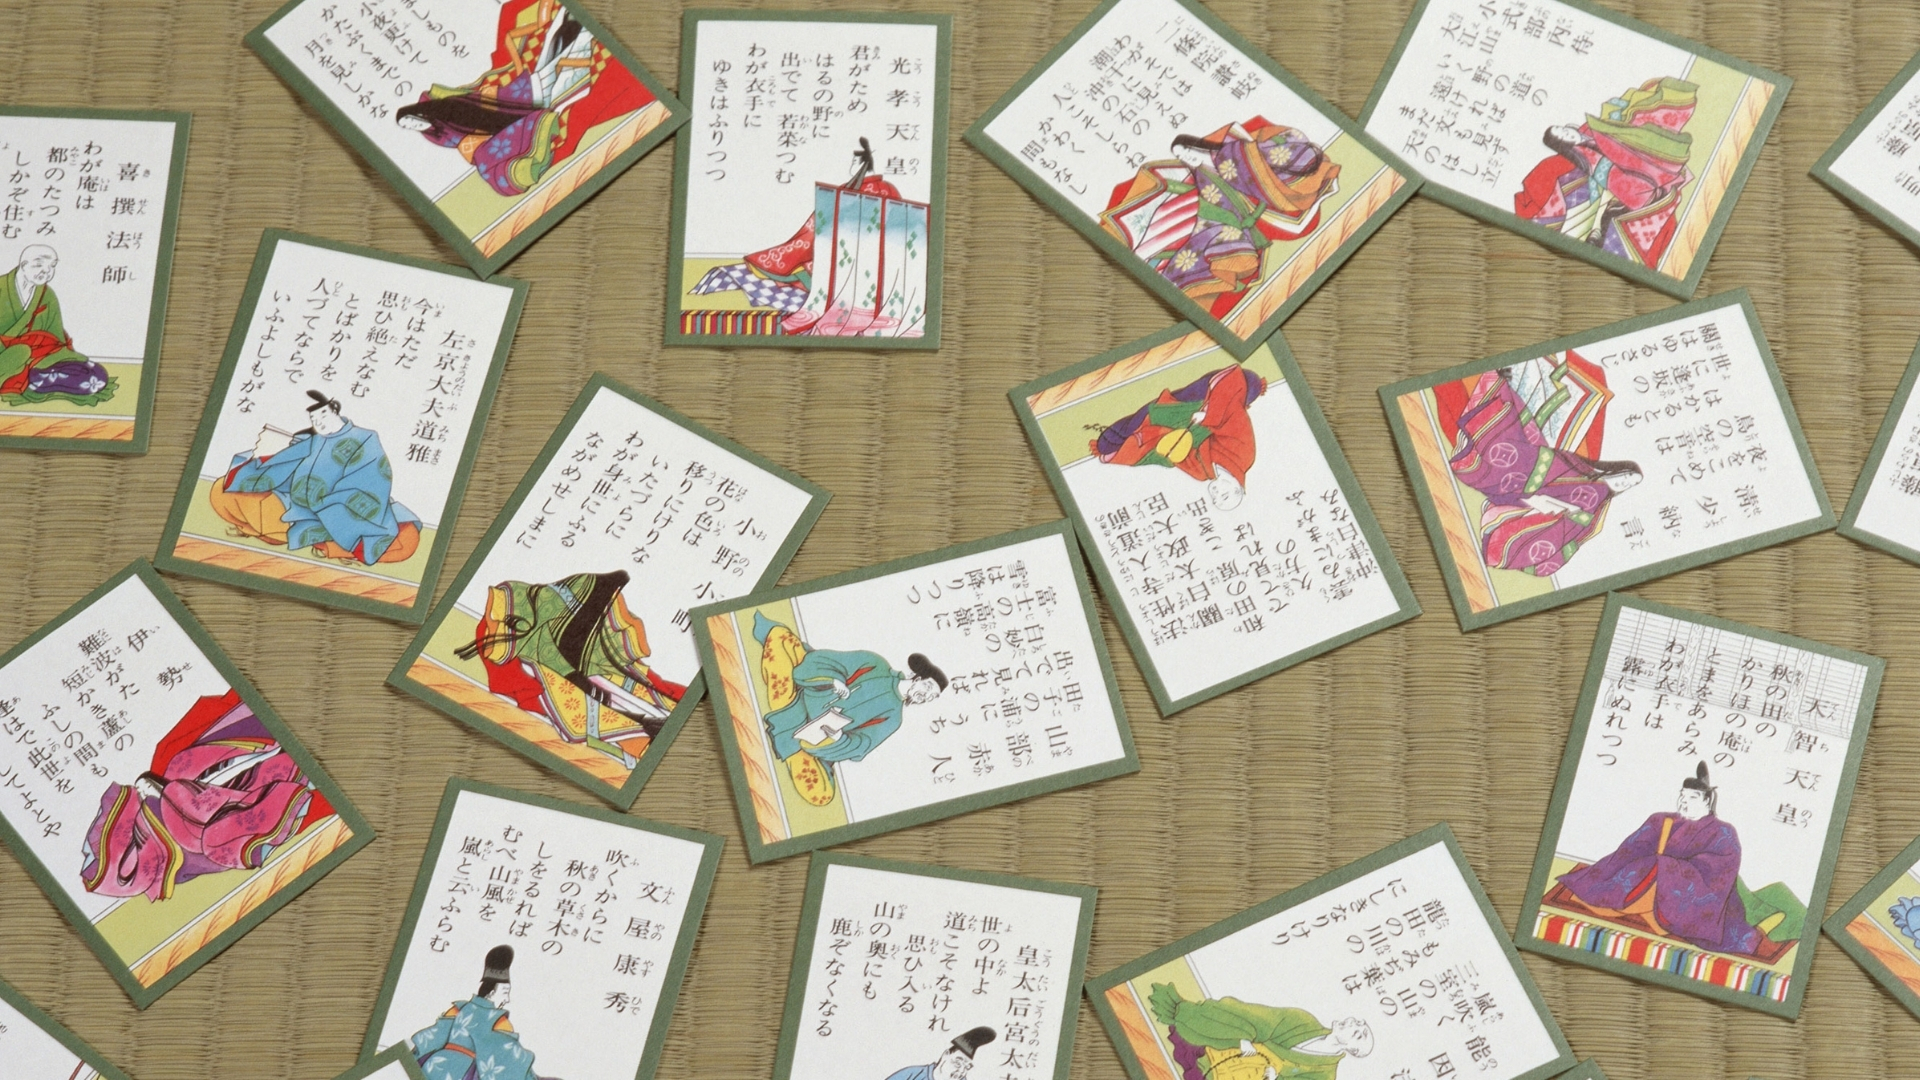 ましものを
小夜更けて
かたぶくまでの
月を見しかな
光孝天皇
君がため
はるの野に
出でて若菜つむ
わが衣手に
ゆきはふりつつ
二條院讃岐
わがそでは
潮干に見えぬ
沖の石の
人こそしらね
かわく
間もなし
小式部内侍
大江山
いく野の道の
遠ければ
まだ文も見ず
天のはし立
喜撰法師
わが庵は
都のたつみ
しかぞ住む
左京大夫道雅
今はただ
思ひ絶えなむ
とばかりを
人づてならで
いふよしもがな
小野小町
花の色は
移りにけりな
いたづらに
わが身世にふる
ながめせしまに
山部赤人
田子の浦にうち
出でて見れば
白妙の
富士の高嶺に
雪は降りつつ
法性寺入道前
関白太政大臣
和田の原こぎ出
でて見れば
久方の
雲ゐにまがふ
沖津白なみ
清少納言
夜をこめて
鳥の空音は
はかるとも
世に逢坂の
關はゆるさじ
天智天皇
秋の田の
かりほの庵の
とまをあらみ
わが衣手は
露にぬれつつ
伊勢
難波がた
短かき蘆の
ふしの間も
此世を
してよとや
文屋康秀
吹くからに
秋の草木の
しをるれば
むべ山風を
嵐と云ふらむ
皇太后宮太
世の中よ
道こそなけれ
思ひ入る
山の奥にも
鹿ぞなくなる
能因
嵐吹く
三室の山の
もみぢ葉は
龍田の川の
にしきなりけり